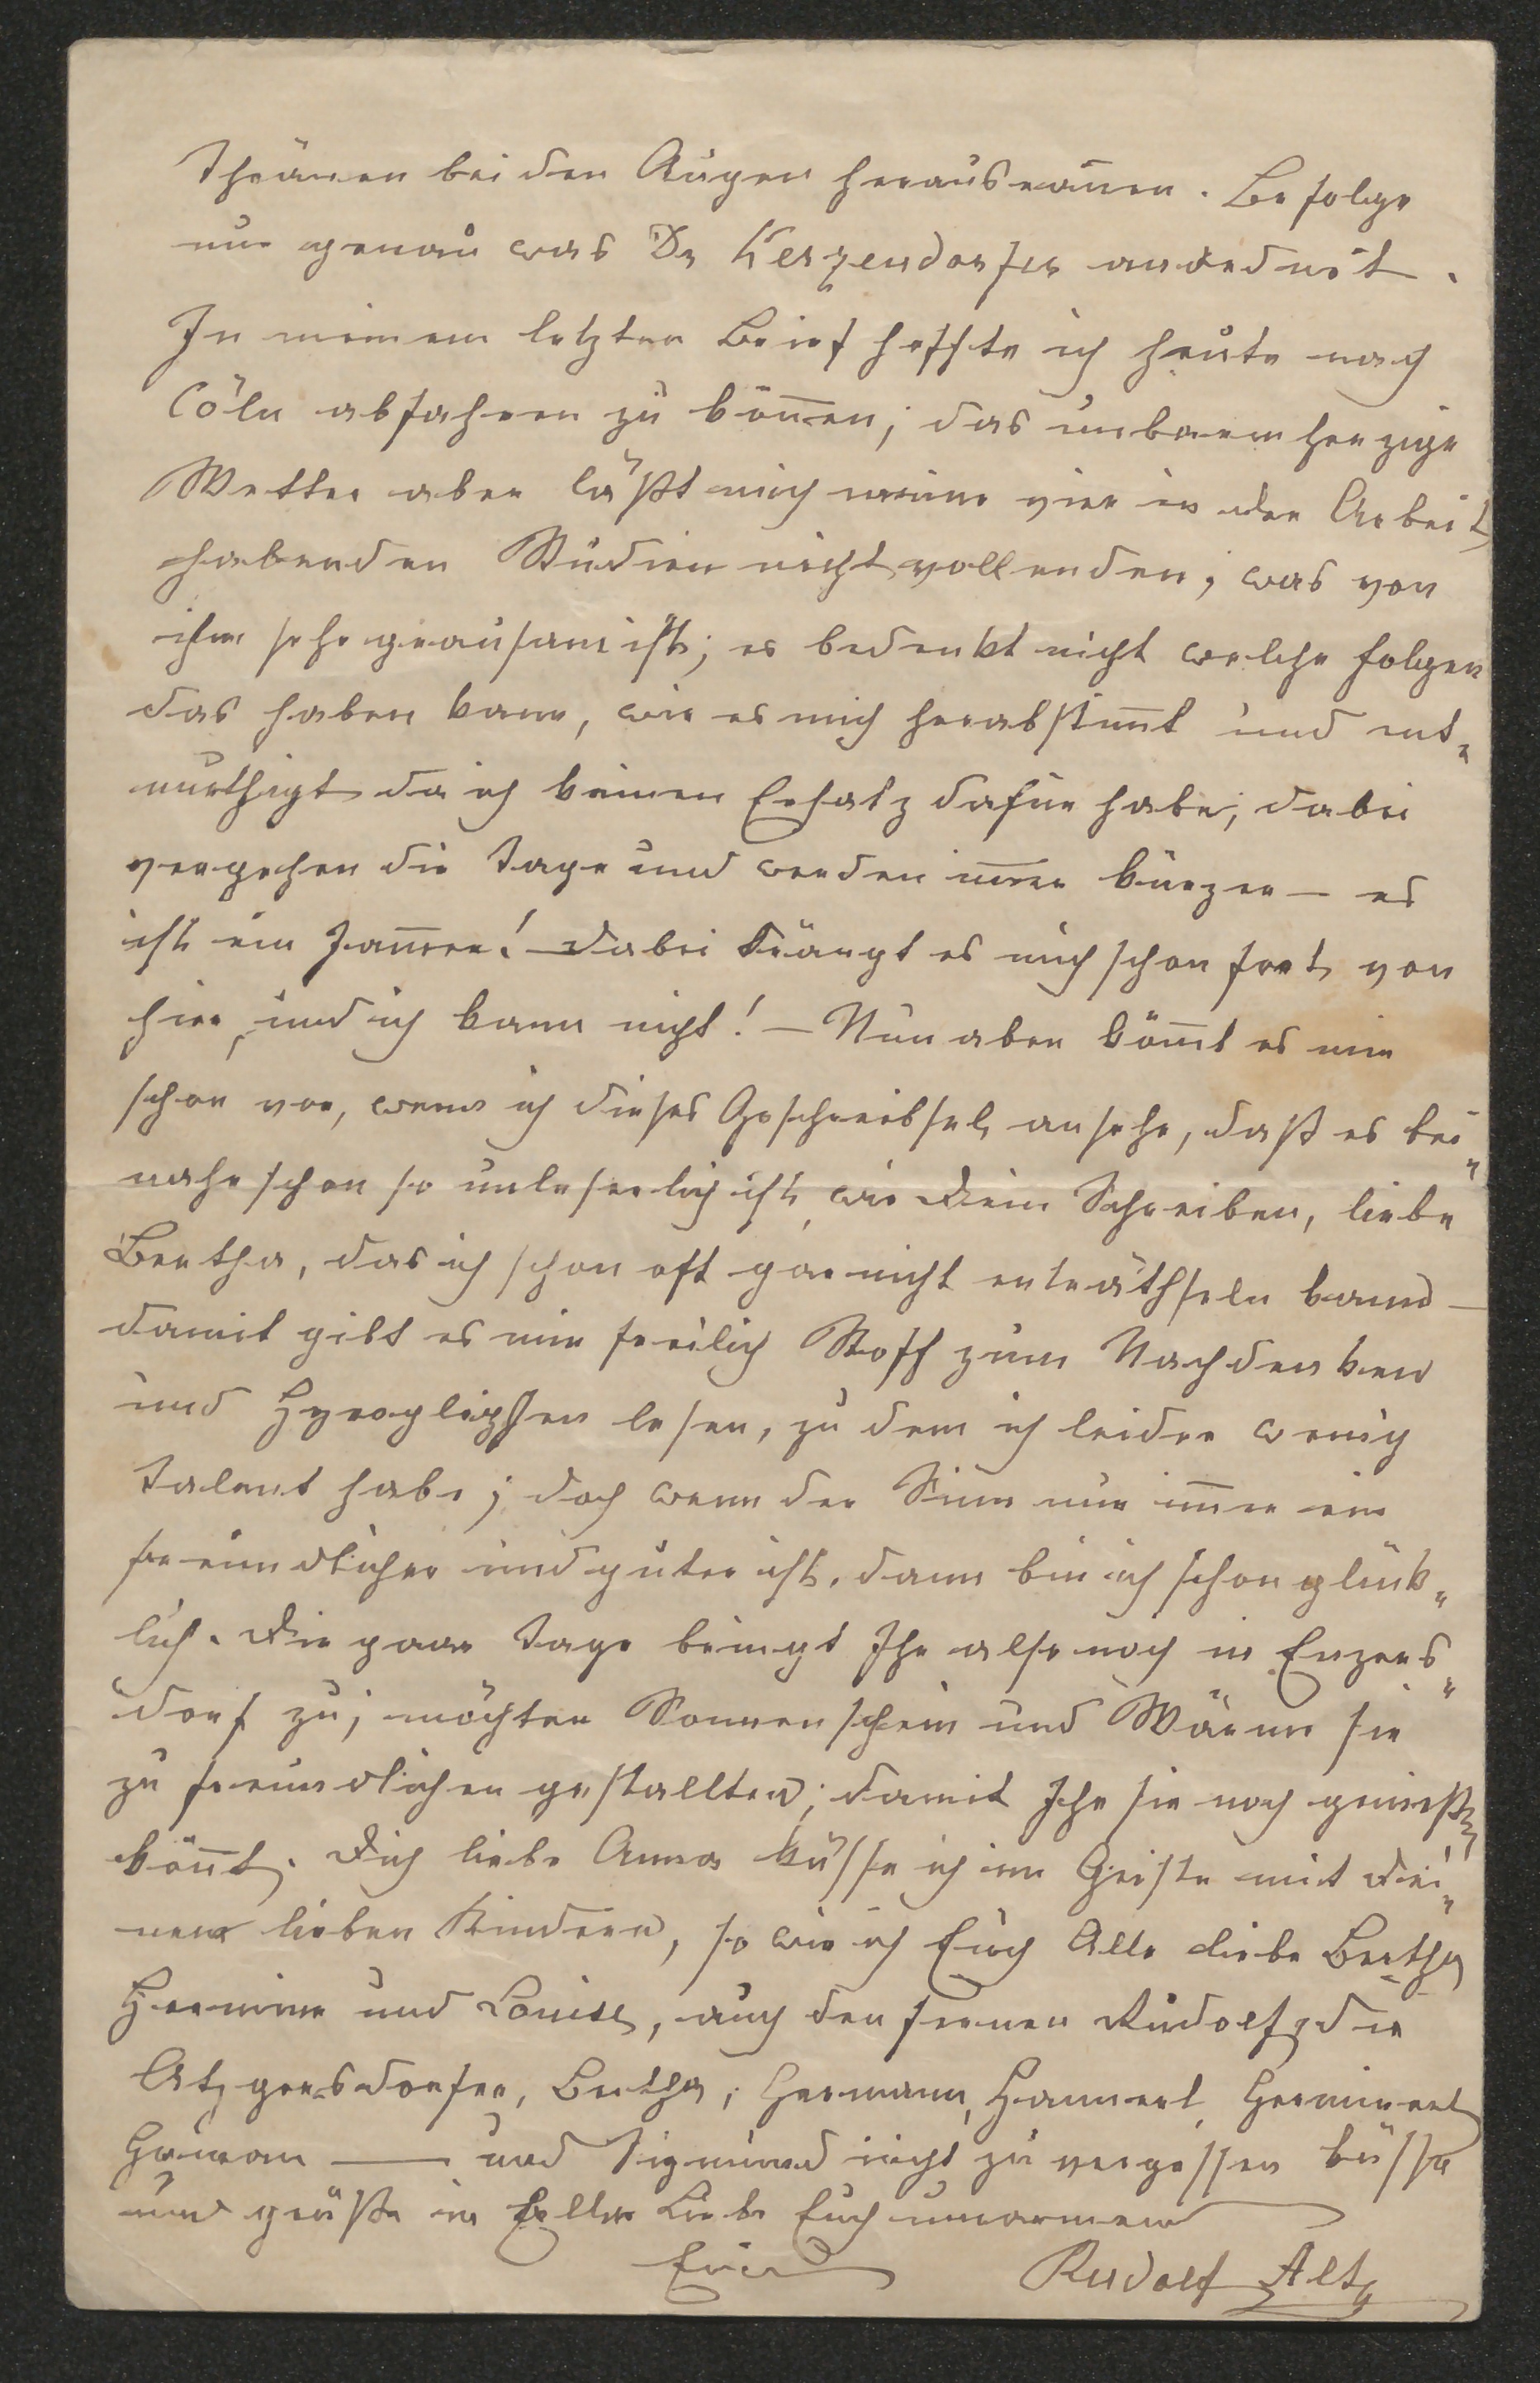 Thränen bei den Augen herausrannen. Befolge
nur genau was Dr Herzendorfer anordnet.
In meinem letzten Brief hoffte ich heute nach
Cöln abfahren zu kön̅en; das unbarmherzige
Wetter aber läßt mich meine vier in der Arbeit
habenden Studien nicht vollenden, was von
ihm sehr grausam ist; es bedenkt nicht welche Folgen
das haben kann, wie es mich herabstim̅t und ent„
muthigt da ich keinen Ersatz dafür habe; dabei
vergehen die Tage und werden im̅er kürzer — es
ist ein Jam̅er! — Dabei drängt es mich schon fort von
hier, und ich kann nicht! — Nun aber köm̅t es mir
schon vor, wenn ich dieses Geschreibsel ansehe, daß es bei„
nahe schon so unleserlich ist, wie Dein Schreiben, liebe
Bertha, das ich schon oft gar nicht enträthseln kann —
damit gibt es mir freilich Stoff zum Nachdenken
und Hyrogliphen lesen, zu dem ich leider wenig
Talent habe; doch wenn der Sinn nur im̅er ein
freundlicher und guter ist, dann bin ich schon glück„
lich. Die paar Tage bringt Ihr also noch in Enzers„
dorf zu; möchten Sonnenschein und Wärme sie
zu freundlichen gestallten, damit Ihr sie noch genießen
kön̅t. Dich liebe Anna küsse ich im Geiste mit Dei„
nen lieben Kindern, so wie ich Euch Alle liebe Bertha
Hermine und Louise, auch den fernen Rudolf, die
Atzgersdorfer, Bertha, Hermann, Hannerl, Herminerl
— und Sigmund nicht zu vergessen küsse
und grüße in Liebe Euch umarmend
Euer Rudolf Alt